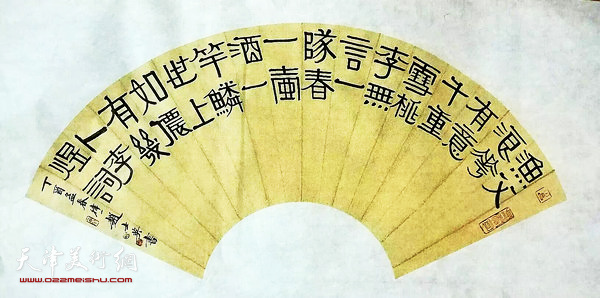 漁父
浪花
有意
千重
雪桃
李無
言一
隊春
一壺
酒一
竿鱗
世上
如儂
有幾
人李
煜詞
丁酉孟春
趙士英書
天津美术网
www.022meishu.com